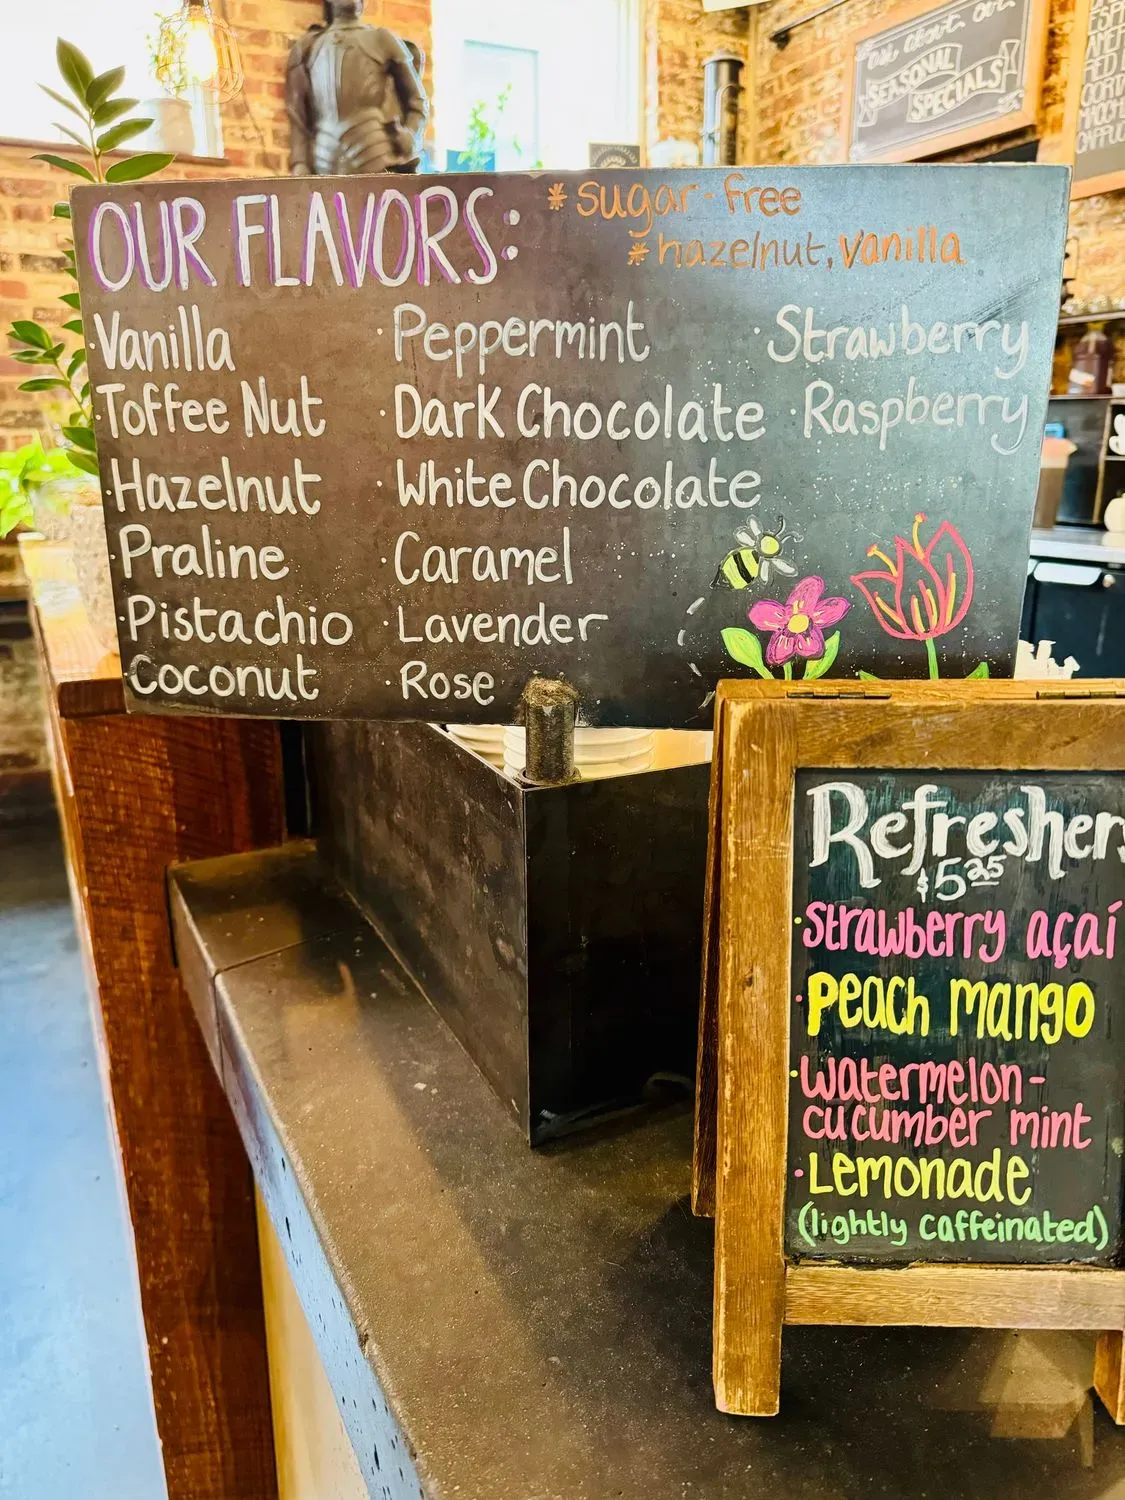 Ask about our
SEASONAL
SPECIALS
OUR FLAVORS:
*sugar-free
*hazelnut, vanilla
·Vanilla
·Toffee Nut
·Hazelnut
·Praline
·Pistachio
·Coconut
·Peppermint
·Dark Chocolate
·White Chocolate
·Caramel
·Lavender
·Rose
·Strawberry
·Raspberry
Refreshers
$5.25
·Strawberry açaí
·Peach mango
·watermelon-
cucumber mint
·Lemonade
(lightly caffeinated)